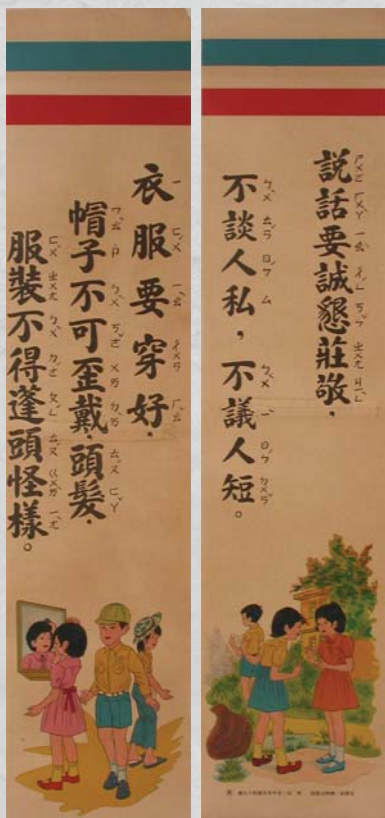 說話要誠懇莊敬，
不談人私，不議人短。
衣服要穿好，
帽子不可歪戴，頭髮，
服裝不得蓬頭怪樣。